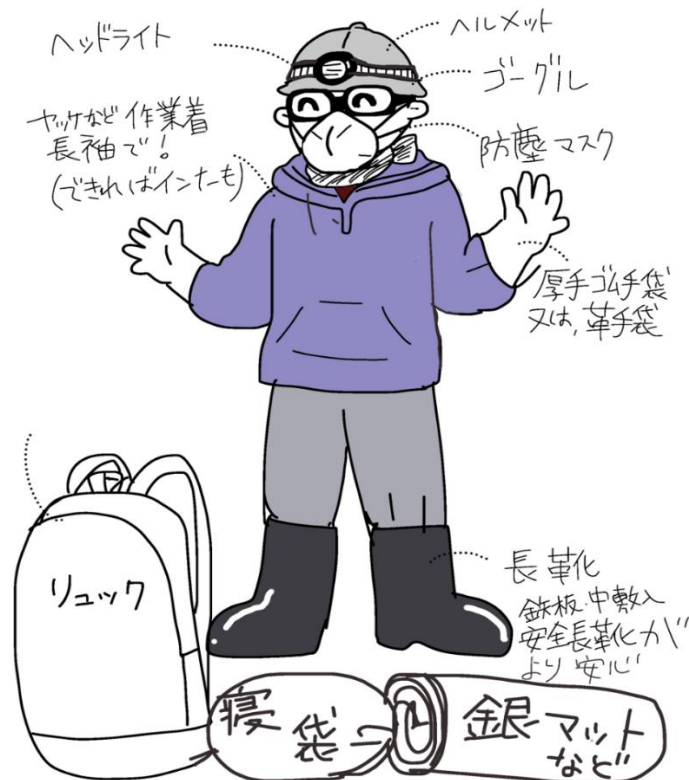 ヘッドライト
ヘルメット
ゴーグル
ヤッケなど作業着
長袖で！
(できればインナーも)
防塵マスク
厚手ゴム手袋
又は、革手袋
リュック
長靴
鉄板中敷入
安全長靴が
より安心
寝袋
銀マット
など